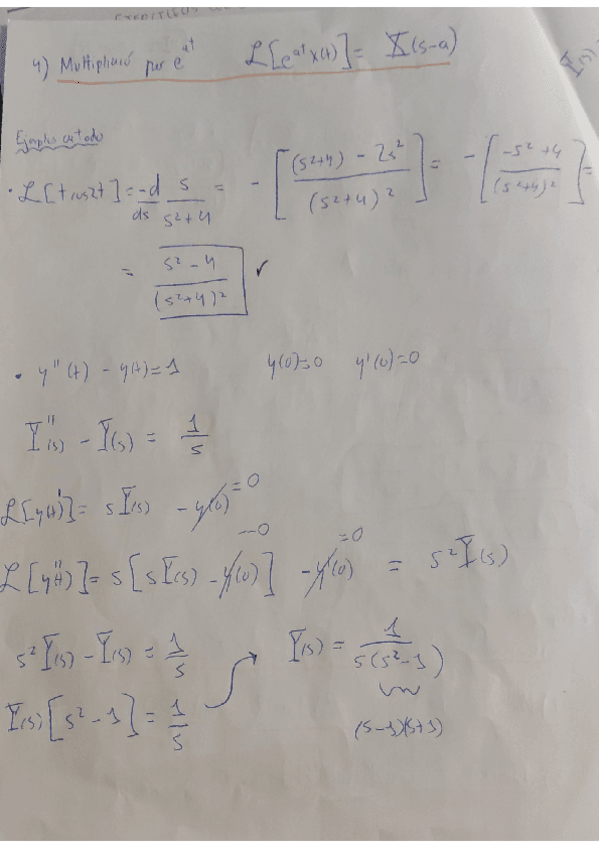 4) Multiplicació per e^at ℒ[e^at x(t)] = X(s-a)
ℒ[t cos2t] = -d/ds s/(s²+4) = - [((s²+4) - 2s²)/(s²+4)²] = - [(-s²+4)/(s²+4)²] =
= (s²-4)/(s²+4)² ✓
• y''(t) - y(t) = 1 y(0)=0 y'(0)=0
Y''(s) - Y(s) = 1/s
ℒ[y(t)'] = sY(s) - y(0) =0
ℒ[y(t)''] = s[sY(s) - y(0)] - y'(0) = s²Y(s)
=0 =0
s²Y(s) - Y(s) = 1/s
Y(s)[s²-1] = 1/s
Y(s) = 1/(s(s²-1))
(s-1)(s+1)